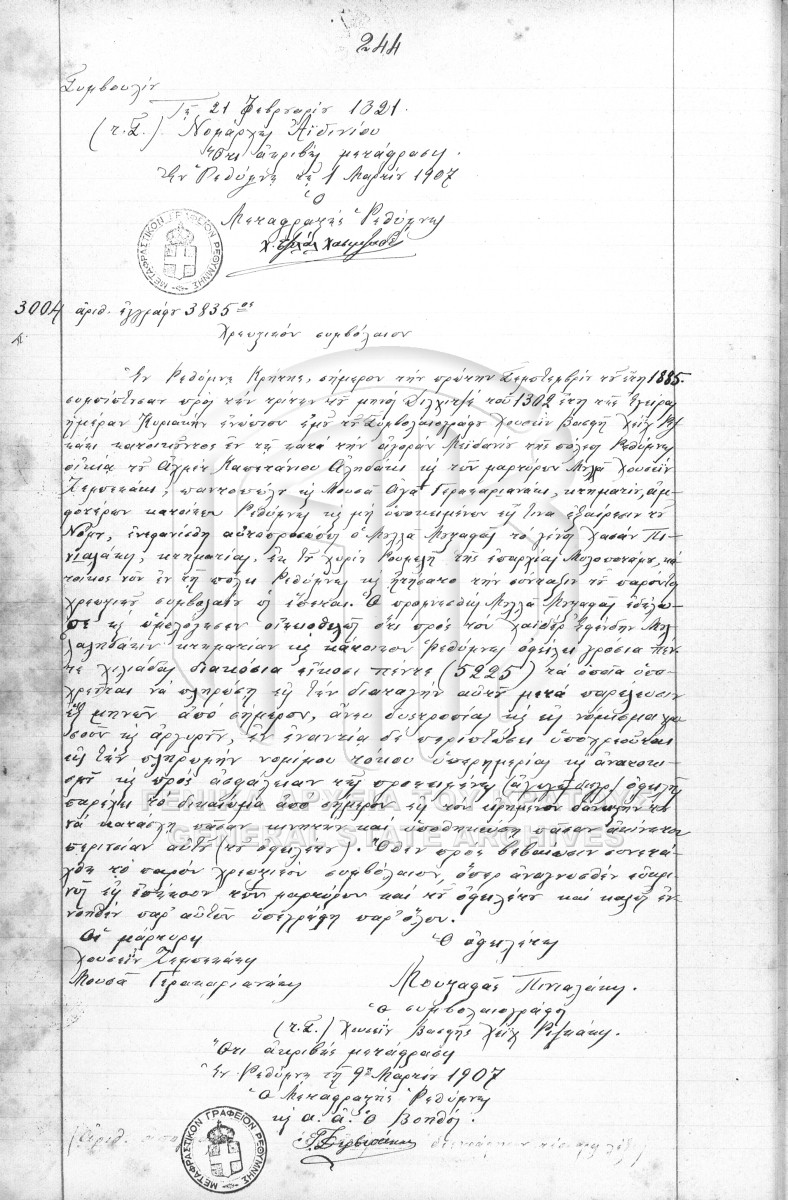 244
Συμβουλίου
Τῇ 21 Φεβρουαρίου 1321.
(τ.Σ.) Νομάρχης Ἀϊδινίου
Ὅτι ἀκριβὴς μετάφρασις.
Ἐν Ρεθύμνῃ τῇ 1 Μαρτίου 1907
Ὁ
Μεταφραστὴς Ρεθύμνης
ΜΕΤΑΦΡΑΣΤΙΚΟΝ ΓΡΑΦΕΙΟΝ ΡΕΘΥΜΝΗΣ
3004 ἀριθ. ἐγγράφου 3835
Χρεωστικόν συμβόλαιον
Ἐν Ρεθύμνῃ Κρήτης, σήμερον τὴν πρώτην Σεπτεμβρίου τοῦ ἔτους 1885.
συμπίπτουσαν πρὸς τὴν τρίτην τοῦ μηνὸς Ζιλχιτζὲ τοῦ 1302 ἔτους τῆς Ἐγείρας
ἡμέραν Κυριακὴν ἐνώπιον ἐμοῦ τοῦ Συμβολαιογράφου Χουσεΐν Βασφῆ Χεΐχ
κατοικοῦντος ἐν τῇ κατὰ τὴν ἀγορὰν Μεϊδάνιον τῆς πόλεως Ρεθύμνης
οἰκίᾳ τοῦ Ἀχμὲτ Καπετάνιου Ἀληδάκι καὶ τῶν μαρτύρων Μουλᾶ Χουσεΐν
Ζεμπεκάκι, παντοπώλου καὶ Μουσᾶ Ἀγᾶ Γερακαριανάκι, κτηματίου, ἀμ-
φοτέρων κατοίκων Ρεθύμνης καὶ μὴ ὑποκειμένων εἴς τινα ἐξαίρεσιν τοῦ
Νόμου, ἐνεφανίσθη αὐτοπροσώπως ὁ Μουλᾶ Μουσταφᾶς τὸ γένος Χασὰν Πι-
νιαλάκι, κτηματίας, ἐκ τοῦ χωρίου Ρουμελῆ τῆς ἐπαρχίας Μυλοποτάμου, κά-
τοικος νῦν ἐν τῇ πόλει Ρεθύμνης καὶ ᾐτήσατο τὴν σύνταξιν τοῦ παρόντος
χρεωστικοῦ συμβολαίου ὡς ἕπεται. Ὁ προμνησθεὶς Μουλᾶ Μουσταφᾶς ἐδήλω-
σε καὶ ὡμολόγησεν οἰκειοθελῶς ὅτι πρὸς τὸν Χαϊδὲρ Ἐφένδην
κτηματίαν καὶ κάτοικον Ρεθύμνης ὀφείλει γρόσια πέν-
τε χιλιάδας διακόσια εἴκοσι πέντε (5225) τὰ ὁποῖα ὑπό-
χρεοῦται νὰ πληρώσῃ εἰς τὴν διαταγὴν αὐτοῦ μετὰ παρέλευσιν
ἓξ μηνῶν ἀπὸ σήμερον, ἄνευ δυστροπίας καὶ εἰς νόμισμα χρυ-
σοῦν καὶ ἀργυροῦν, ἐν ἐναντίᾳ δὲ περιπτώσει ὑποχρεοῦται
εἰς τὴν πληρωμὴν νομίμου τόκου ὑπερημερίας καὶ
καὶ πρὸς ἀσφάλειαν τῆς προκειμένης ὀφειλῆς
παρέχει τὸ δικαίωμα ἀπὸ σήμερον εἰς τὸν εἰρημένον δανειστὴν του
νὰ κατάσχῃ πᾶσαν κινητὴν καὶ ὑποθηκεύσῃ πᾶσαν ἀκίνητον
περιουσίαν αὐτοῦ (τοῦ ὀφειλέτου). Ὅθεν πρὸς βεβαίωσιν συνετά-
χθη τὸ παρὸν χρεωστικὸν συμβόλαιον, ὅπερ ἀναγνωσθὲν εὐκρι-
νῶς εἰς ἐπήκοον τῶν μαρτύρων καὶ τοῦ ὀφειλέτου καὶ καλῶς ἐν-
νοηθὲν παρ' αὐτῶν ὑπεγράφη παρ' ὅλων.
Οἱ μάρτυρες Ὁ ὀφειλέτης
Χουσεΐν Ζεμπεκάκης
Μουσᾶ Γερακαριανάκης Μουσταφᾶς Πινιαλάκης.
Ὁ συμβολαιογράφος
(τ.Σ.) Χουσεΐν Βασφῆς Χεΐχ
Ὅτι ἀκριβὴς μετάφρασις
Ἐν Ρεθύμνῃ τῇ 9 Μαρτίου 1907
Ὁ Μεταφραστὴς Ρεθύμνης
καὶ α. ἀ. Ὁ Βοηθός
ΜΕΤΑΦΡΑΣΤΙΚΟΝ ΓΡΑΦΕΙΟΝ ΡΕΘΥΜΝΗΣ
ΓΕΝΙΚΑ ΑΡΧΕΙΑ ΤΟΥ ΚΡΑΤΟΥΣ
GENERAL STATE ARCHIVES